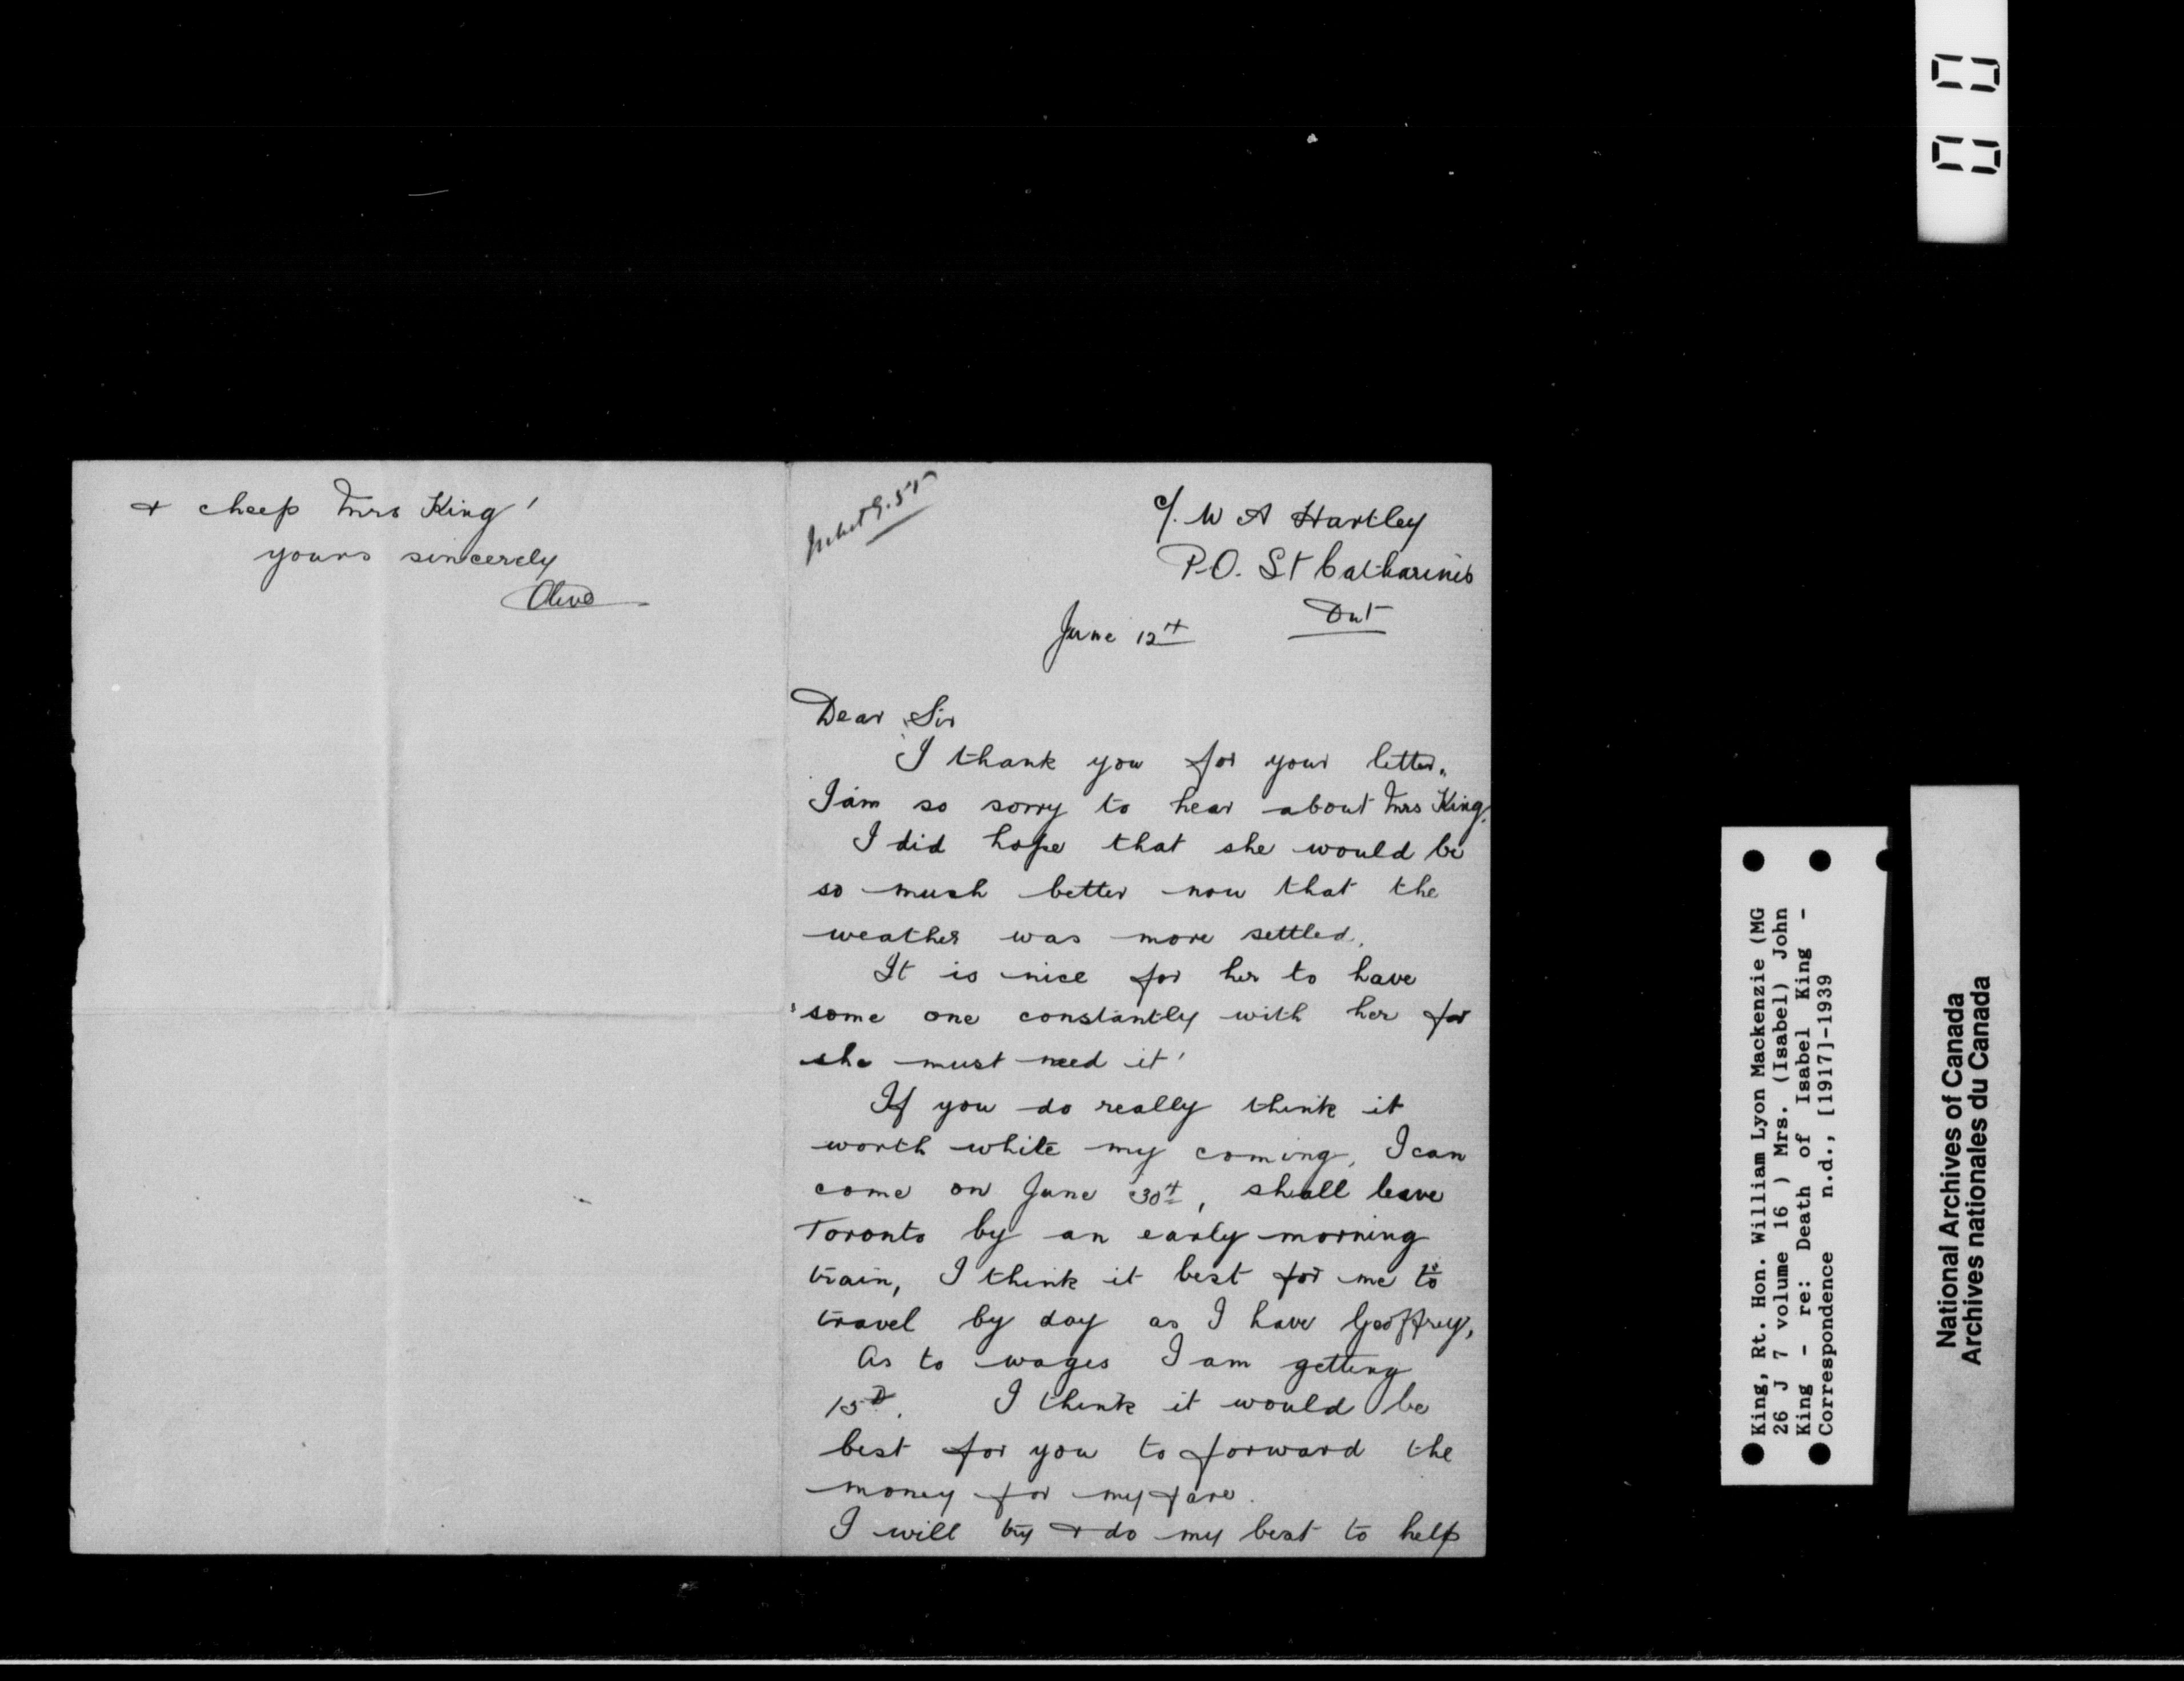 c/. W A Hartley
P.O. St Catharines
Ont
June 12th
Dear Sir
I thank you for your letter.
I am so sorry to hear about Mrs King.
I did hope that she would be
so much better now that the
weather was more settled.
It is nice for her to have
some one constantly with her for
she must need it!
If you do really think it
worth while my coming, I can
come on June 30th, shall leave
Toronto by an early morning
train, I think it best for me to
travel by day as I have Geoffrey,
As to wages I am getting
15D. I think it would be
best for you to forward the
money for my fare.
I will try & do my best to help
& cheep Mrs King!
yours sincerely
Olive
King, Rt. Hon. William Lyon Mackenzie (MG
26 J 7 volume 16 ) Mrs. (Isabel) John
King - re: Death of Isabel King -
Correspondence n.d., [1917]-1939
National Archives of Canada
Archives nationales du Canada